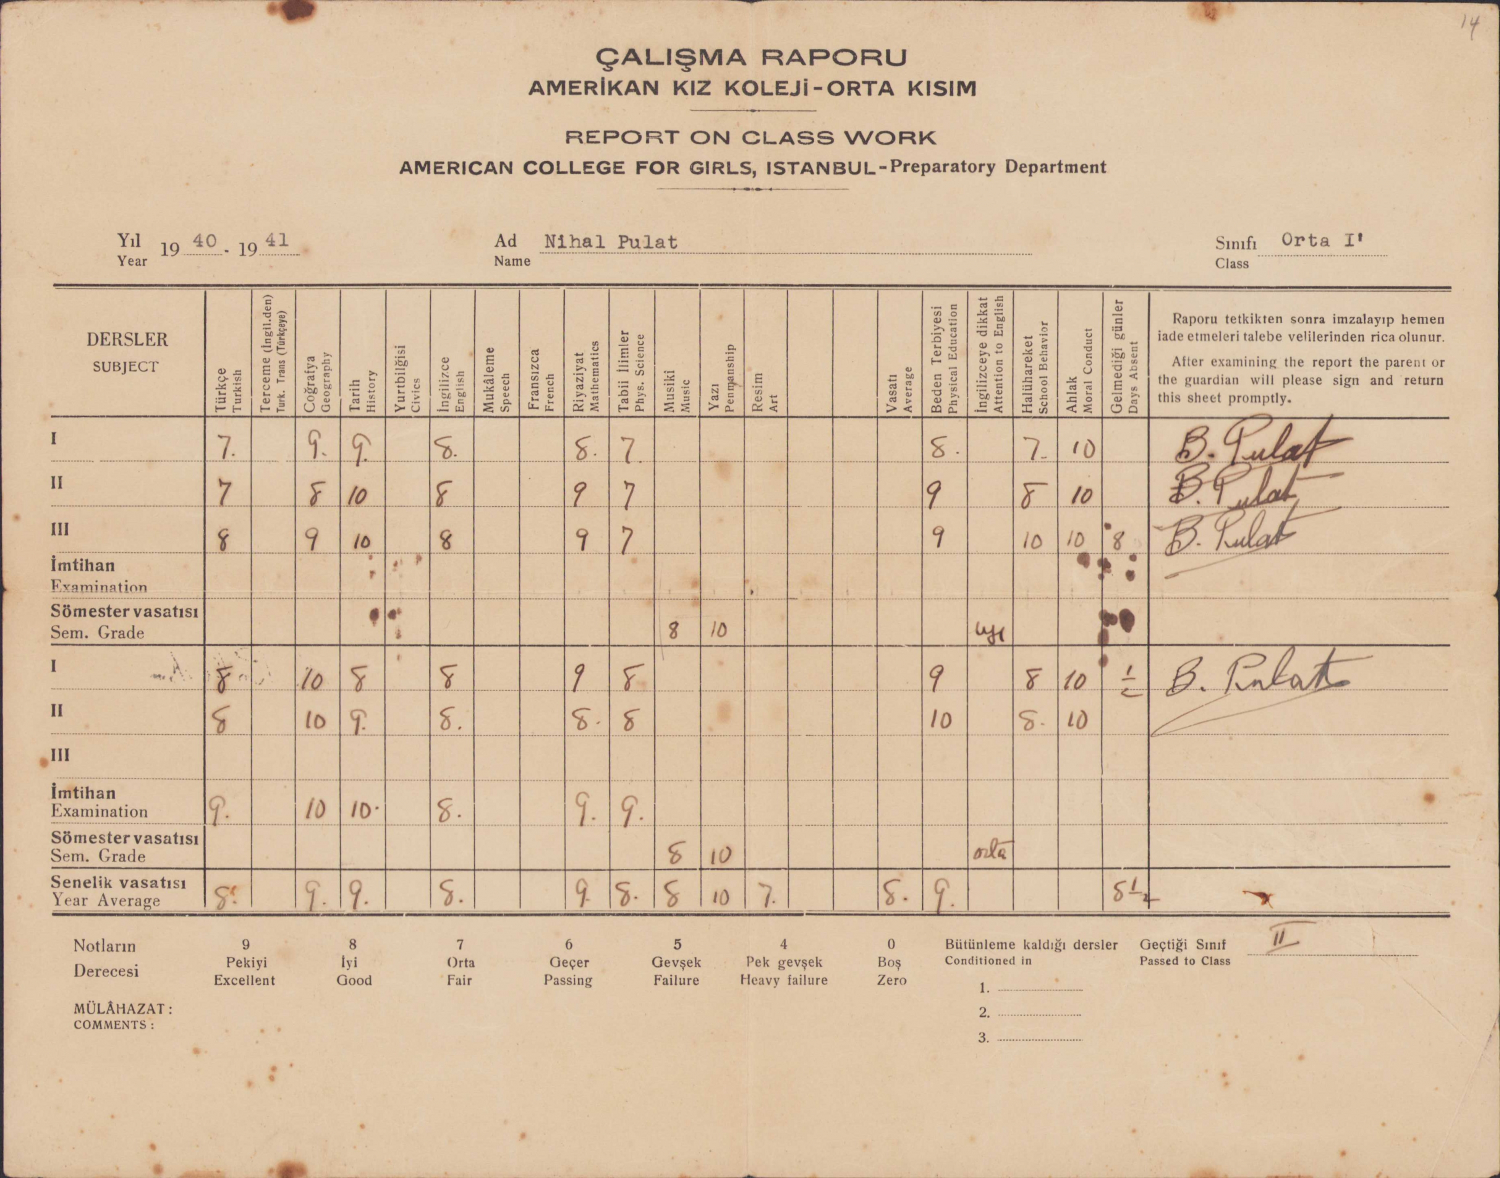 14
ÇALIŞMA RAPORU
AMERİKAN KIZ KOLEJİ-ORTA KISIM
REPORT ON CLASS WORK
AMERICAN COLLEGE FOR GIRLS, ISTANBUL-Preparatory Department
Yıl 19 40 - 19 41 Ad Nihal Pulat Sınıfı Orta I'
Year Name Class
DERSLER
SUBJECT
Türkçe
Turkish
Terceme (İngil.den)
Turk. Trans (Türkçeye)
Coğrafya
Geography
Tarih
History
Yurtbilğisi
Civics
İngilizce
English
Mukâleme
Speech
Fransızca
French
Riyaziyat
Mathematics
Tabii İlimler
Phys. Science
Musiki
Music
Yazı
Penmanship
Resim
Art
Vasatı
Average
Beden Terbiyesi
Physical Education
İngilizceye dikkat
Attention to English
Halühareket
School Behavior
Ahlak
Moral Conduct
Gelmediği günler
Days Absent
Raporu tetkikten sonra imzalayıp hemen
iade etmeleri talebe velilerinden rica olunur.
After examining the report the parent or
the guardian will please sign and return
this sheet promptly.
I 7. 9. 9. 8. 8. 7. 8. 7. 10 B. Pulat
II 7 8 10 8 9 7 9 8 10 B. Pulat
III 8 9 10 8 9 7 9 10 10 8 B. Pulat
İmtihan
Examination
Sömester vasatısı
Sem. Grade 8 10
I 8 10 8 8 9 8 9 8 10 1/2 B. Pulat
II 8 10 9. 8. 8. 8 10 8. 10
III
İmtihan
Examination 9. 10 10. 8. 9. 9.
Sömester vasatısı
Sem. Grade 8 10 orta
Senelik vasatısı
Year Average 8. 9. 9. 8. 9. 8. 8 10 7. 8. 9. 8 1/2
Notların 9 8 7 6 5 4 0 Bütünleme kaldığı dersler Geçtiği Sınıf II
Derecesi Pekiyi İyi Orta Geçer Gevşek Pek gevşek Boş Conditioned in Passed to Class
Excellent Good Fair Passing Failure Heavy failure Zero
1.
MÜLÂHAZAT :
COMMENTS :
2.
3.